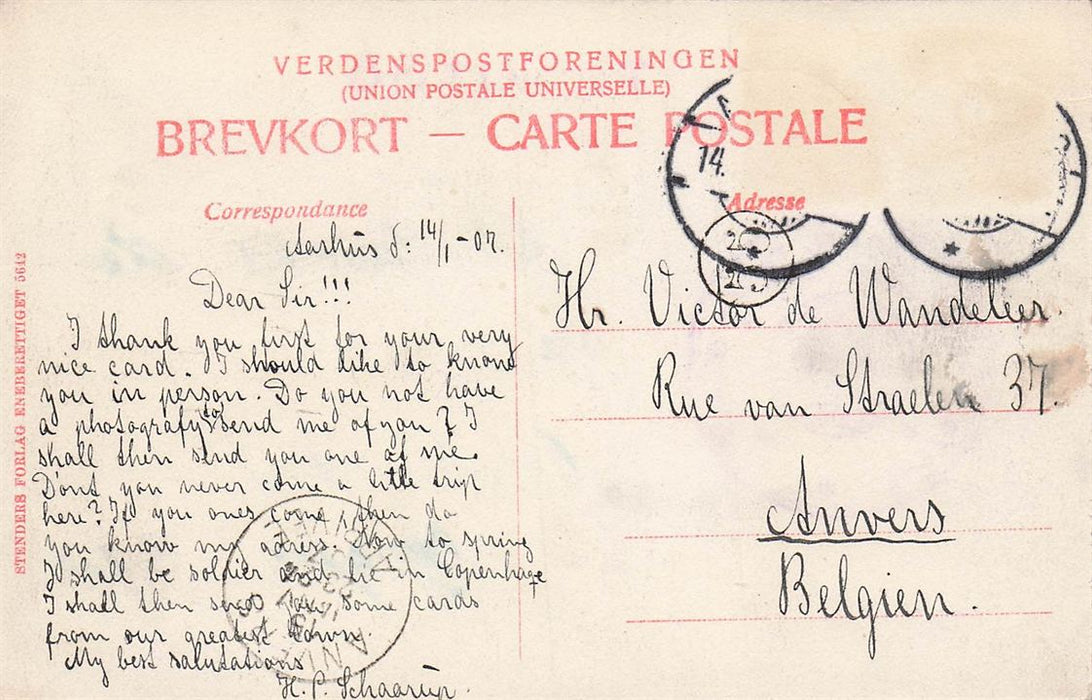 VERDENSPOSTFORENINGEN
(UNION POSTALE UNIVERSELLE)
BREVKORT — CARTE POSTALE
Correspondance
Aarhus d: 14/1-07.
Dear Sir!!!
I thank you first for your very
nice card. I should like to know
you in person. Do you not have
a photografy to send me of you? I
shall then send you one of me.
Dont you never come a little trip
here? If you ones come then do
you know my adress. Now to spring
I shall be soldier and lie in Copenhage
I shall then send you some cards
from our greatest town.
My best salutations
H. P. Schaarup.
STENDERS FORLAG ENEBERETTIGET 5642
Adresse
14.
Hr. Victor de Wandeleer.
Rue van Straelen 37.
Anvers
Belgien.